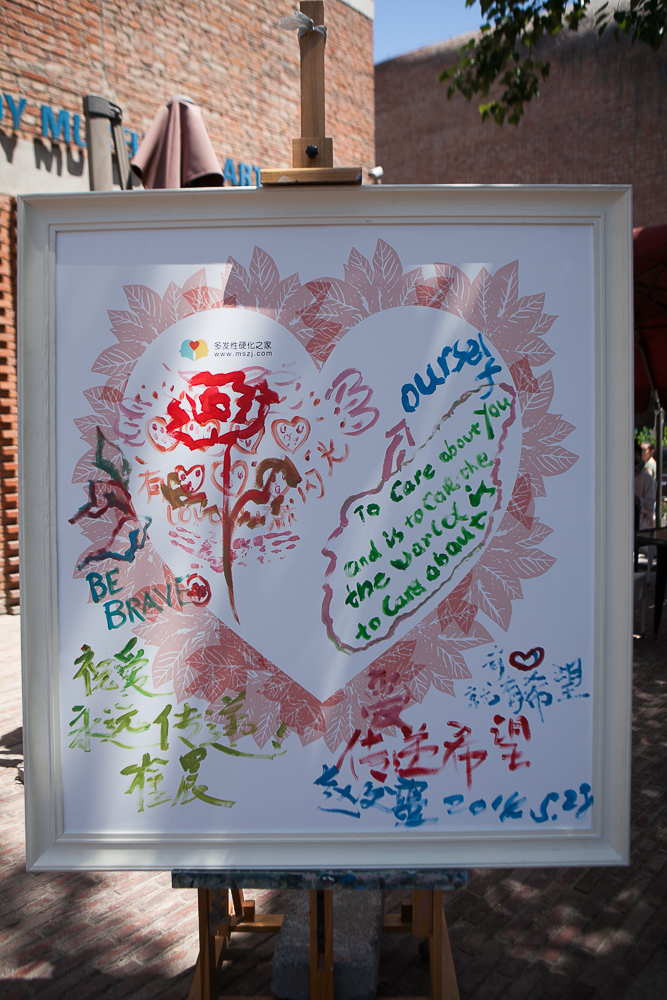 ART
多发性硬化之家
www.mszj.com
ourself
To Care about You
and is to Care the
the world is
to Care about
有
闪光
BE
BRAVE
祝爱
永远传递!
爱
传递希望
有
就有希望
2014.5.29